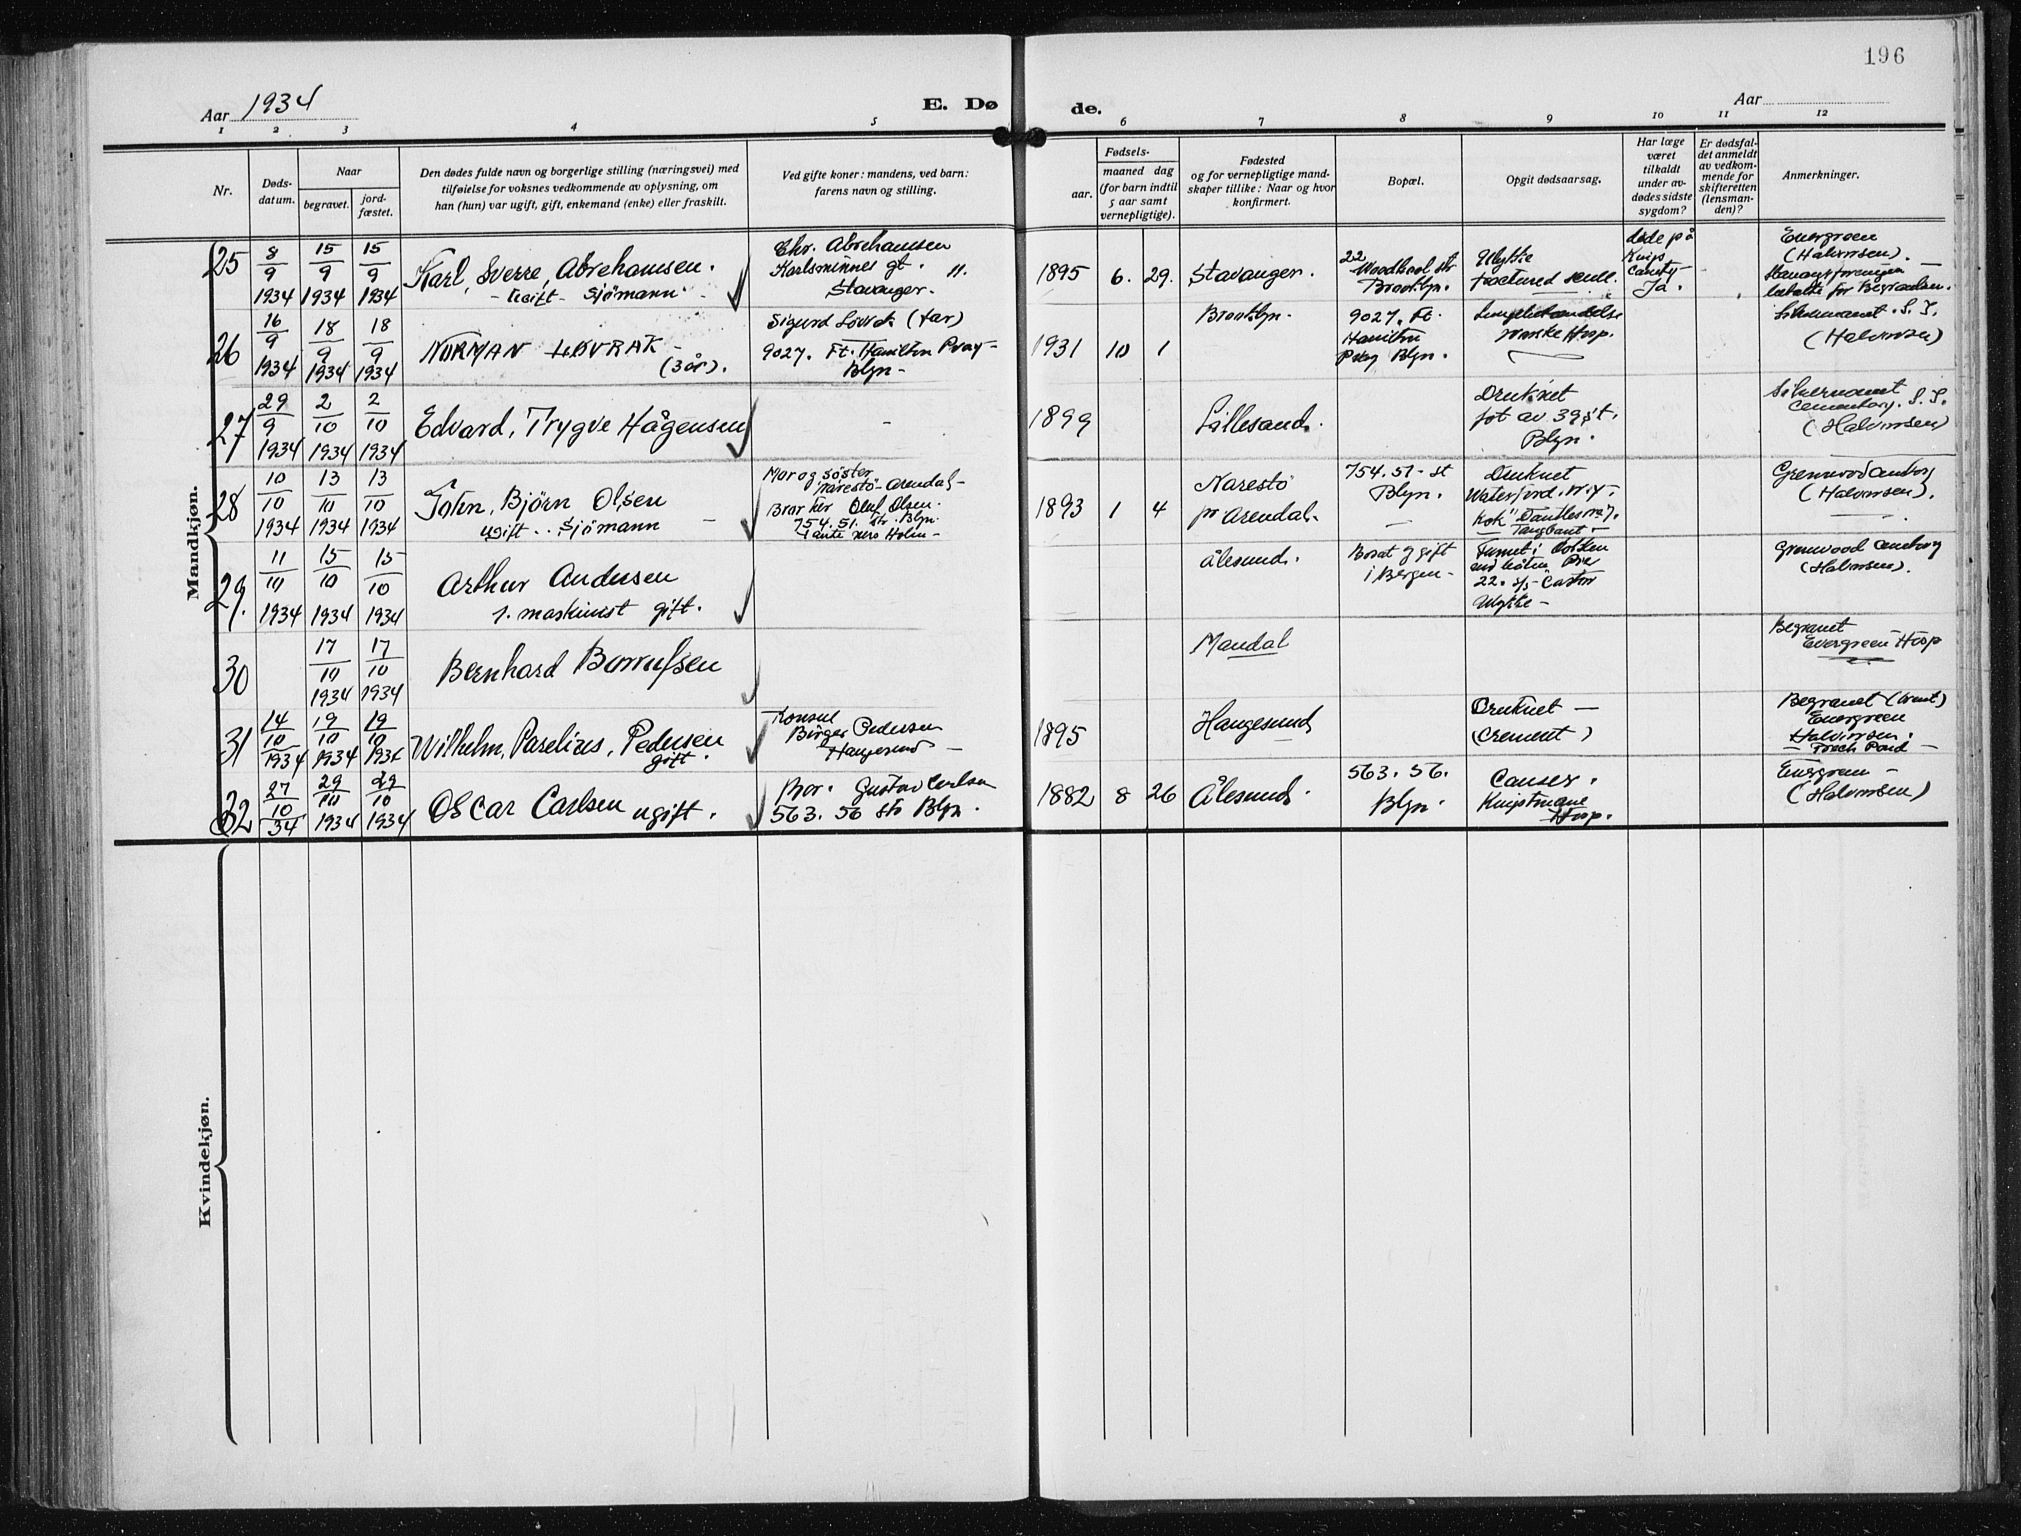 196
Aar 1934
E. Dø
de.
Aar
1 2 3 4 5 6 7 8 9 10 11 12
Nr.
Døds-
datum.
Naar
begravet.
jord-
fæstet.
Den dødes fulde navn og borgerlige stilling (næringsvei) med
tilføielse for voksnes vedkommende av oplysning, om
han (hun) var ugift, gift, enkemand (enke) eller fraskilt.
Ved gifte koner: mandens, ved barn:
farens navn og stilling.
Fødsels-
aar.
maaned dag
(for barn indtil
5 aar samt
vernepligtige).
Fødested
og for vernepligtige mand-
skaper tillike: Naar og hvor
konfirmert.
Bopæl.
Opgit dødsaarsag.
Har læge
været
tilkaldt
under av-
dødes sidste
sygdom?
Er dødsfal-
det anmeldt
av vedkom-
mende for
skifteretten
(lensman-
den)?
Anmerkninger.
Mandkjøn.
25
8/9 1934
15/9 1934
15/9 1934
Karl, Sverre, Abrehamsen.
- Ugift - Sjömann.
Chr. Abrehamsen
Karlsminnes gt. 11.
Stavanger.
1895 6. 29.
Stavanger.
22
Woodhool str
Brooklyn.
Ulykke
fractured scull.
døde på
Kings
County-
Ja.
Evergreen
(Halvorsen).
26
16/9 1934
18/9 1934
18/9 1934
NORMAN LØVRAK -
(3 år).
Sigurd Lövrak (far)
9027. Ft. Hamilton Pway-
Blyn-
1931 10 1
Brooklyn-
9027. Ft.
Hamilton
Pway Blyn.
norske Hosp.
S. I.
(Halvorsen)
27
29/9 1934
2/10 1934
2/10 1934
Edvard, Trygve Hågensen
-
1899
Lillesand.
Druknet
fot av 39 st.
Blyn.
S. I.
(Halvorsen)
28
10/10 1934
13/10 1934
13/10 1934
John, Bjørn Olsen
ugift .. Sjömann -
Mor og söster
Narestö - Arendal-
Bror her Oluf Olsen.
754. 51. str. Blyn.
Tante Mrs Holm-
1893 1 4
Narestö
pr Arendal.
754. 51 - st
Blyn.
Druknet
Waterford. N.Y.
Grenwood
(Halvorsen).
29.
11/10 1934
15/10 1934
15/10 1934
Arthur Andersen
1. maskinist gift.
Ålesund.
Bosat og gift
i Bergen-
22. s/s - Castor
Ulykke -
Grenwood
(Halvorsen).
30
17/10 1934
17/10 1934
Bernhard
Mandal
Begravet
Evergreen Hosp
31
14/10 1934
19/10 1934
19/10 1934
Wilhelm, Parelius, Pedersen
gift.
Konsul
Birger Pedersen
Haugesund -
1895
Haugesund
Druknet -
(Crement)
Begravet
Evergreen
Halvorsen.
32
27/10 34
29/10 1934
29/10 1934
Oscar Carlsen ugift.
Bror. Gustav Carlsen
563. 56 str Blyn.
1882 8 26
Ålesund.
563. 56.
Blyn.
Cancer.
Hosp.
Evergreen -
(Halvorsen)
Kvindekjøn.